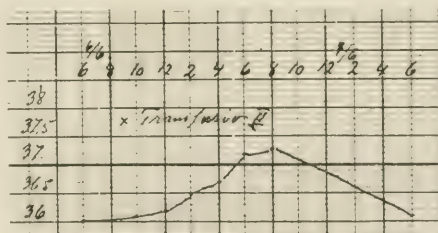 6/6 7/6
6 8 10 12 2 4 6 8 10 12 2 4 6
38
37.5 x Transfusion II
37
36.5
36